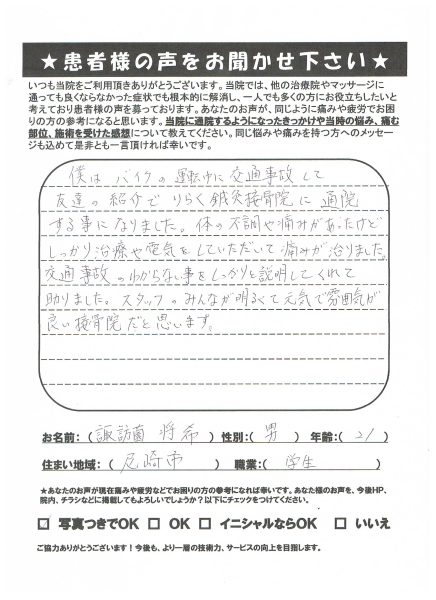 ★患者様の声をお聞かせ下さい★
いつも当院をご利用頂きありがとうございます。当院では、他の治療院やマッサージに
通っても良くならなかった症状でも根本的に解消し、一人でも多くの方にお役立ちしたいと
考えており患者様の声を募っております。あなたのお声が、同じように痛みや疲労でお困
りの方の参考になると思います。当院に通院するようになったきっかけや当時の悩み、痛む
部位、施術を受けた感想について教えてください。同じ悩みや痛みを持つ方へのメッセー
ジも込めて是非とも一言頂ければ幸いです。
僕はバイクの運転中に交通事故して
友達の紹介でりらく鍼灸接骨院に通院
する事になりました。体の不調や痛みがあったけど
しっかり治療や電気をしていただいて痛みが治りました。
交通事故のわからない事をしっかりと説明してくれて
助りました。スタッフのみんなが明るくて元気で雰囲気が
良い接骨院だと思います。
お名前:(諏訪薗 将希) 性別:(男) 年齢:(21)
住まい地域:(尼崎市) 職業:(学生)
★あなたのお声が現在痛みや疲労などでお困りの方の参考になれば幸いです。あなた様のお声を、今後HP、
院内、チラシなどに掲載してもよろしいでしょうか?以下にチェックをつけてください。
□ 写真つきでOK □ OK □ イニシャルならOK □ いいえ
ご協力ありがとうございます!今後も、より一層の技術力、サービスの向上を目指します。